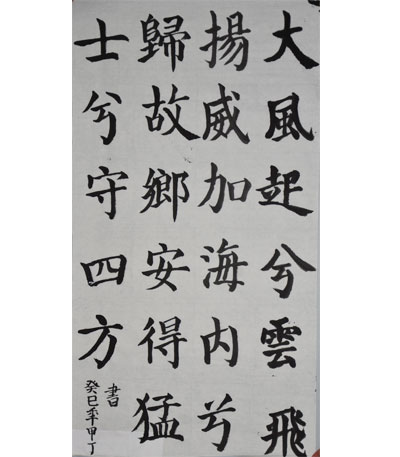 大風起兮雲飛
揚威加海内兮
歸故鄉安得猛
士兮守四方
癸巳季甲丁
書